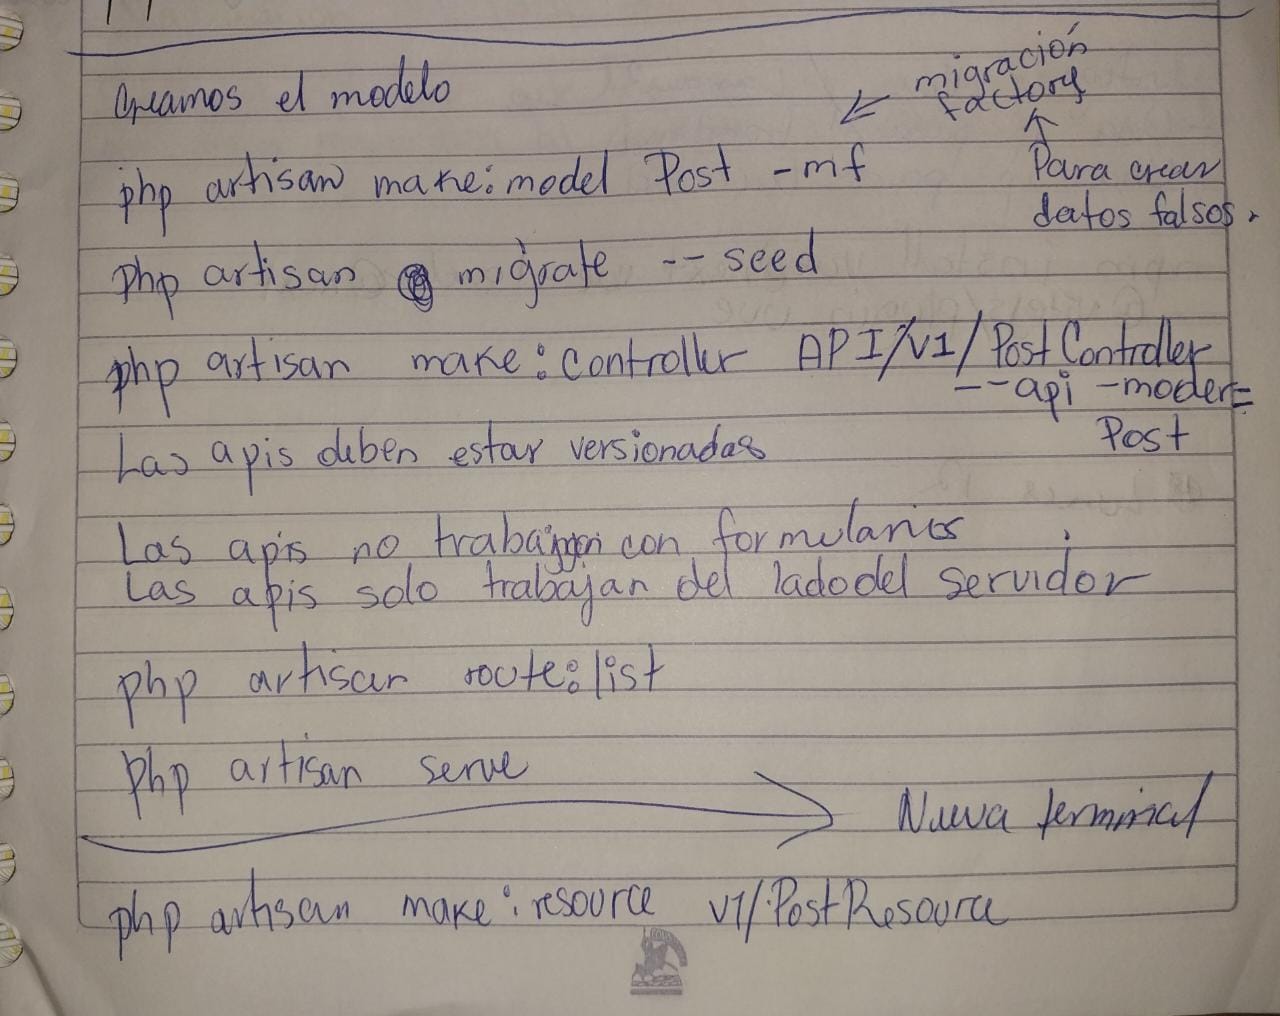 Creamos el modelo
migración
factory
php artisan make:model Post -mf
Para crear
datos falsos.
php artisan migrate --seed
php artisan make:controller API/V1/PostController
--api -model=
Post
Las apis deben estar versionadas
Las apis no trabajan con formularios
Las apis solo trabajan del lado del servidor
php artisan route:list
php artisan serve
Nueva terminal
php artisan make:resource V1/PostResource